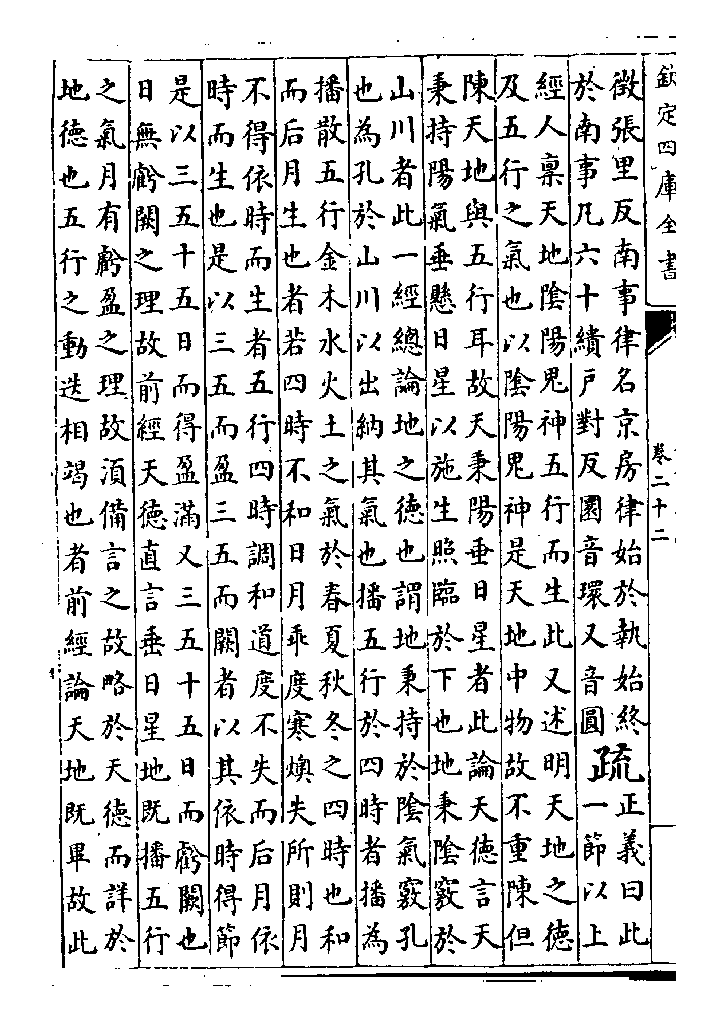 欽定四庫全書
卷二十二
徵張里反南事律名京房律始於執始終
於南事凡六十續戶對反圜音環又音圓
疏
正義曰此
一節以上
經人稟天地隂陽鬼神五行而生此又述明天地之德
及五行之氣也以隂陽鬼神是天地中物故不重陳但
陳天地與五行耳故天秉陽垂日星者此論天德言天
秉持陽氣垂懸日星以施生照臨於下也地秉隂竅於
山川者此一經總論地之德也謂地秉持於隂氣竅孔
也為孔於山川以出納其氣也播五行於四時者播為
播散五行金木水火土之氣於春夏秋冬之四時也和
而后月生也者若四時不和日月乖度寒燠失所則月
不得依時而生者五行四時調和道度不失而后月依
時而生也是以三五而盈三五而闕者以其依時得節
是以三五十五日而得盈滿又三五十五日而虧闕也
日無虧闕之理故前經天德直言垂日星地既播五行
之氣月有虧盈之理故須備言之故略於天德而詳於
地德也五行之動迭相竭也者前經論天地既畢故此